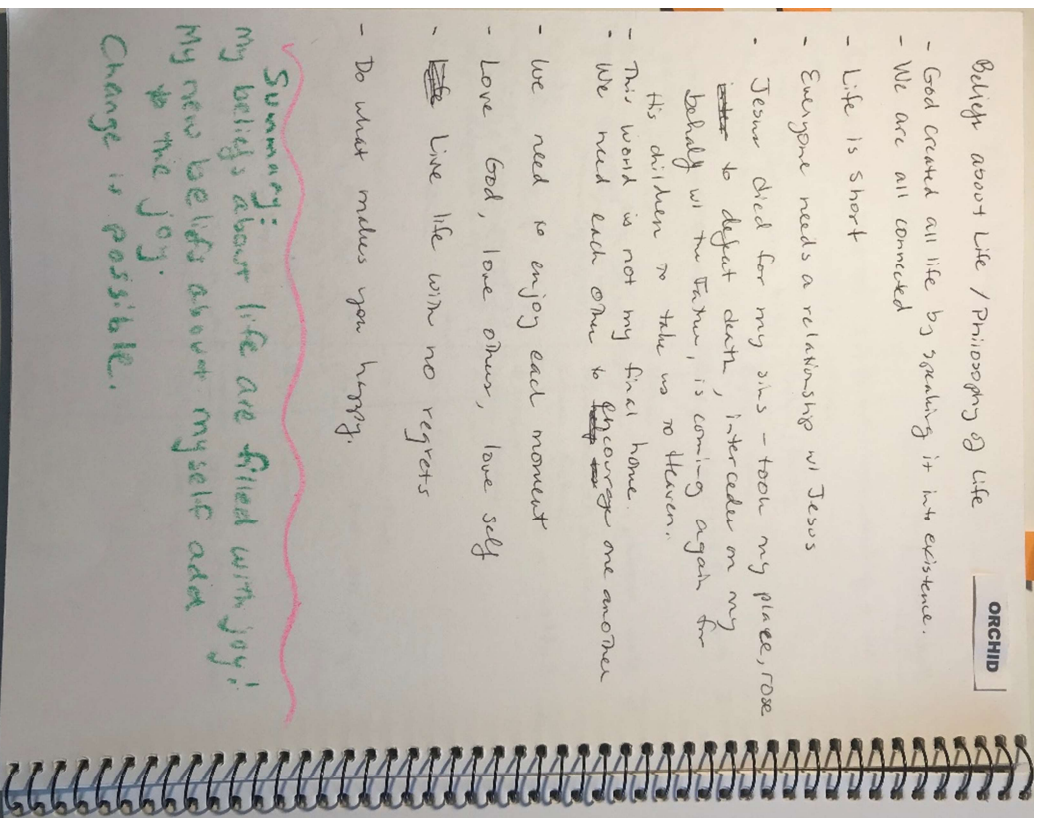 Beliefs about Life / Philosophy of Life
ORCHID
- God created all life by speaking it into existence.
- We are all connected
- Life is short
- Everyone needs a relationship w/ Jesus
- Jesus died for my sins - took my place, rose
to defeat death, intercedes on my
behalf w/ the Father, is coming again for
His children to take us to Heaven.
- This world is not my final home.
- We need each other to encourage one another
- We need to enjoy each moment
- Love God, love others, love self
- Live life with no regrets
- Do what makes you happy.
Summary:
My beliefs about life are filled with joy!
My new beliefs about myself add
to the joy.
Change is possible.